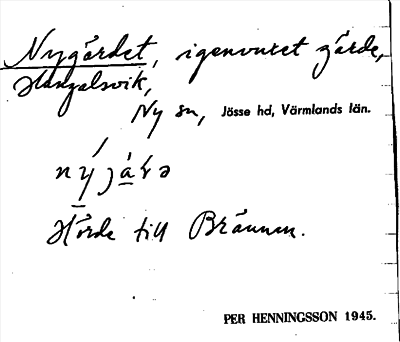 Nygärdet, igenvuxet gärde,
Hangelsvik,
Ny sn, Jösse hd, Värmlands län.
Hörde till Brännan.
PER HENNINGSSON 1945.